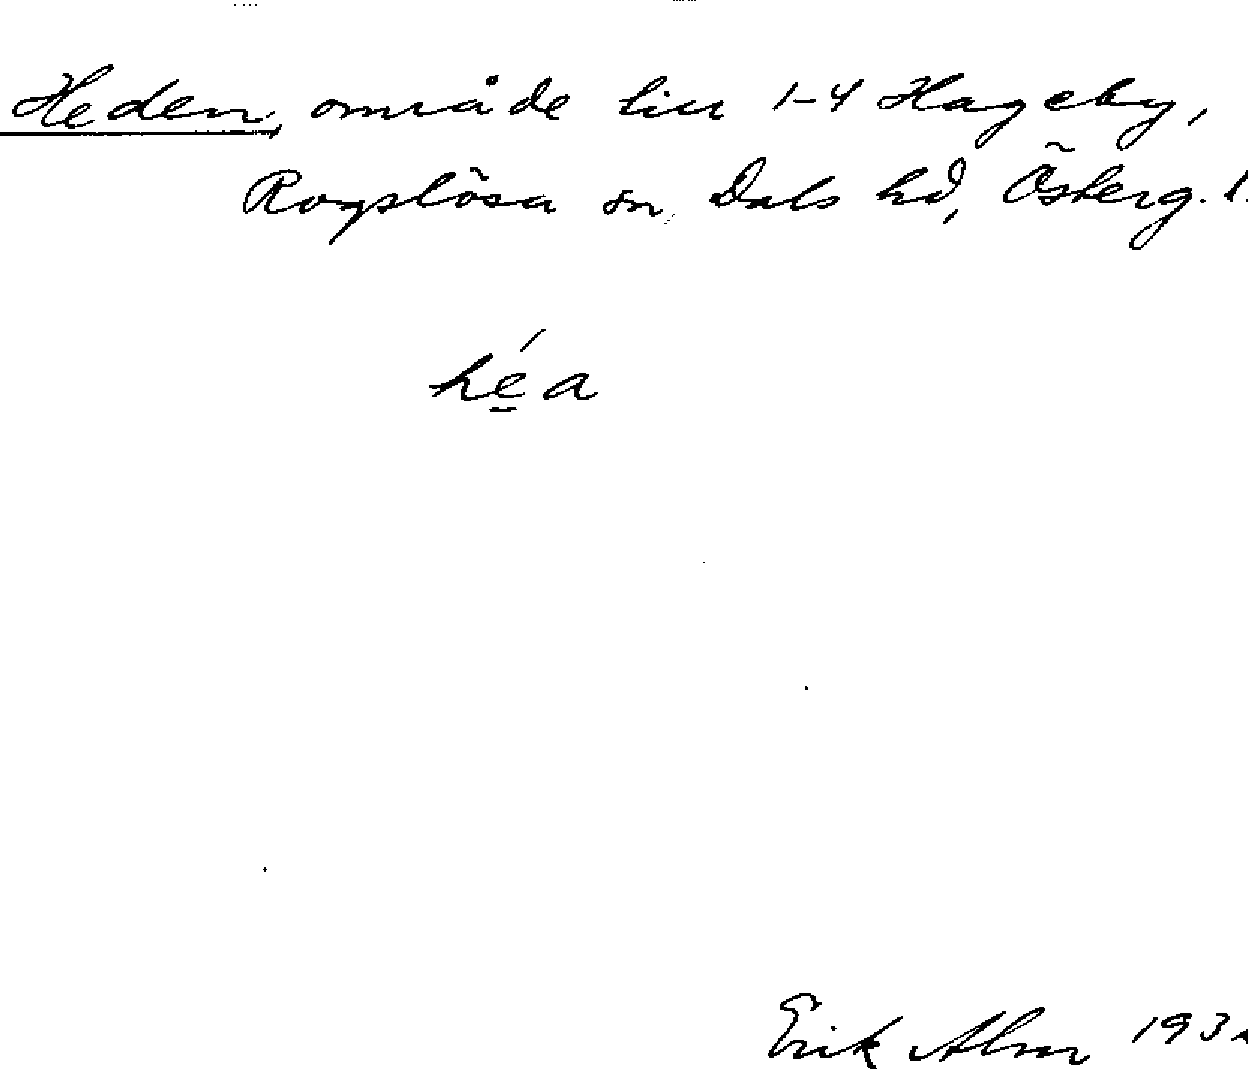 Heden, område till 1-4 Hageby,
Rogslösa sn, Dals hd, Österg. l.
hé̱a
Erik Alm